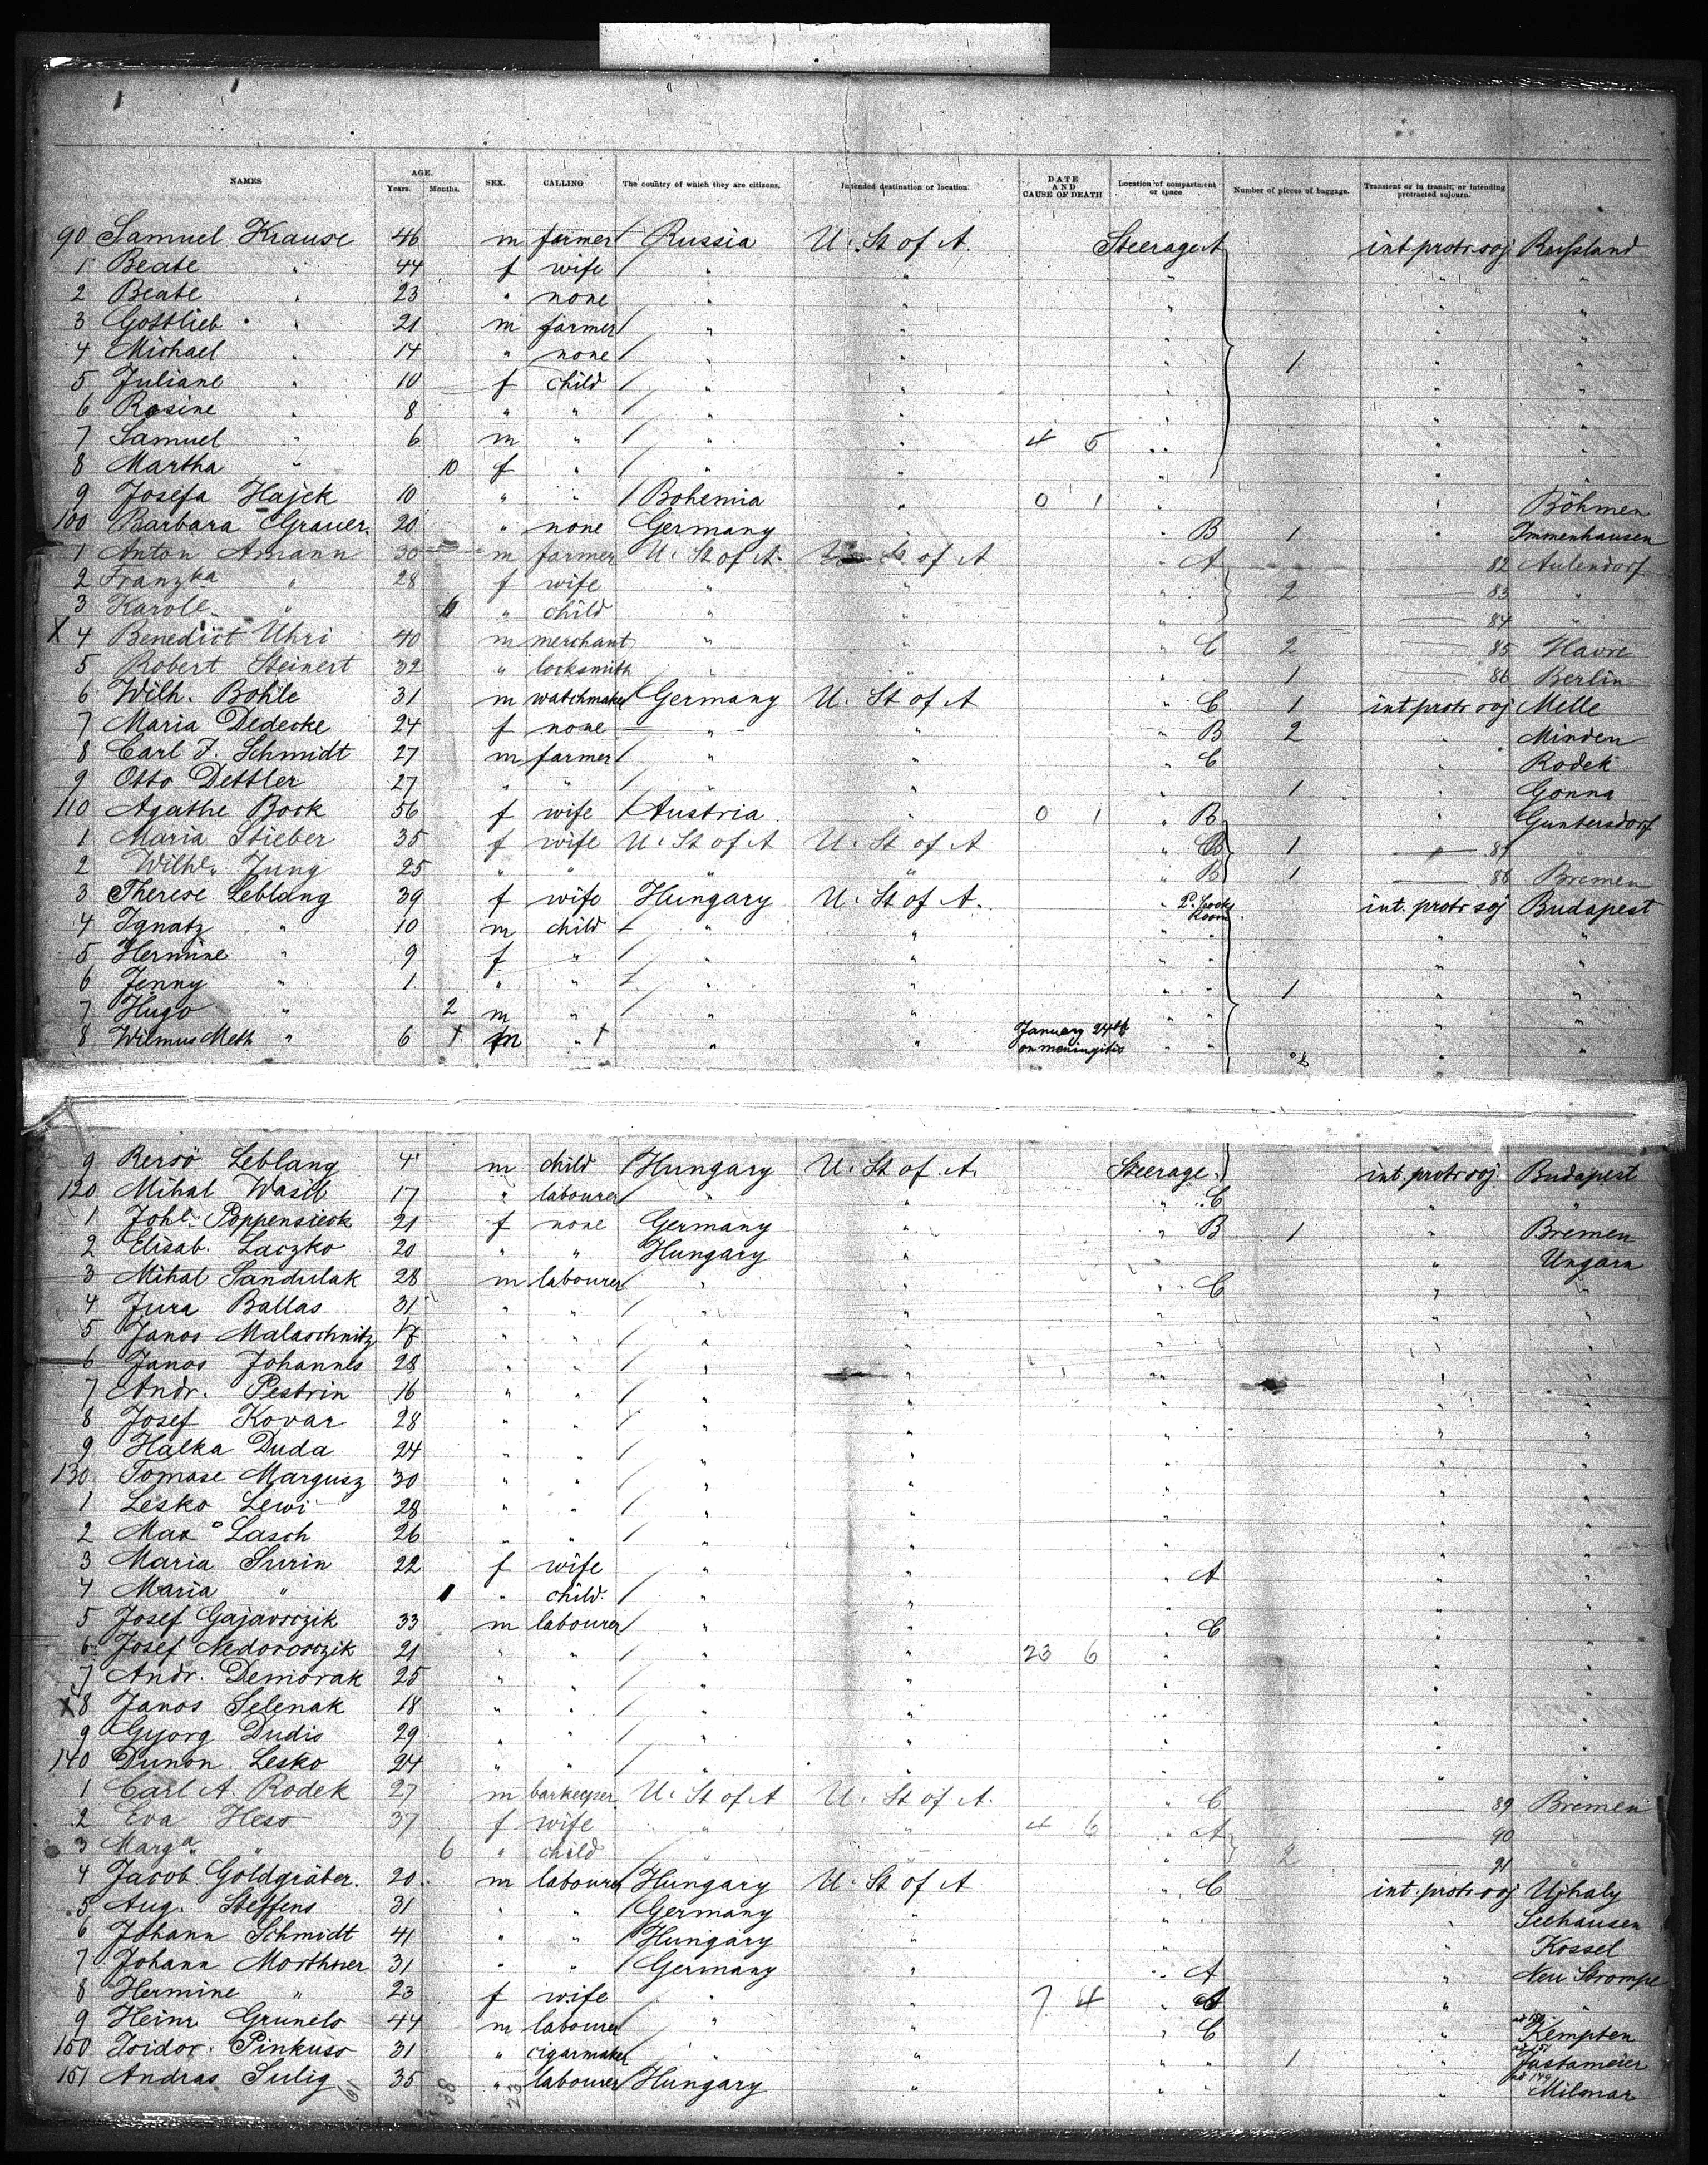 NAMES AGE. Years. Months. SEX. CALLING The country of which they are citizens. Intended destination or location. DATE AND CAUSE OF DEATH Location of compartment or space Number of pieces of baggage. Transient or in transit, or intending protracted sojourn.
90 Samuel Krause 46 m farmer Russia U. St of A. Steerage A int protr soj Russland
1 Beate " 44 f wife " " " " "
2 Beate " 23 " none " " " " "
3 Gottlieb " 21 m farmer " " " " "
4 Michael " 14 " none " " " 1 " "
5 Juliane " 10 f child " " " " "
6 Rosine " 8 " " " " " " "
7 Samuel " 6 m " " " 4 5 " " "
8 Martha " 10 f " " " " " "
9 Josefa Hajek 10 " " Bohemia " 0 1 " " Böhmen
100 Barbara Grauer. 20 " none Germany " " B 1 " Immenhausen
1 Anton Amann 30 m farmer U. St of A. U. St of A " A 82 Aulendorf
2 Franzka " 28 f wife " " " 2 83 "
3 Karole " child " " " 84 "
X 4 Benedict Uhri 40 m merchant " " " C 2 85 Havre
5 Robert Steinert 32 " locksmith " " " 1 86 Berlin
6 Wilh. Bohle 31 m watchmaker Germany U. St of A " C 1 int protr soj Melle
7 Maria Dedecke 24 f none " " " B 2 " Minden
8 Carl F. Schmidt 27 m farmer " " " C " Rodek
9 Otto Dettler 27 " " " " " 1 " Gonna
110 Agathe Bock 56 f wife Austria " 0 1 " B " Guntersdorf
1 Maria Stieber 35 f wife U. St of A U. St of A " B 1 87 "
2 Wilhe. Jung 25 " " " " " B 1 88 Bremen
3 Therese Leblang 39 f wife Hungary U. St of A. " Room int. protr soj Budapest
4 Ignatz " 10 m child " " " " " "
5 Hermine " 9 f " " " " " " "
6 Jenny " 1 " " " " " " 1 " "
7 Hugo " 2 m " " " " " " "
8 Wilmus Meth " 6 † m " † " " January 24th on meningitis " " " "
9 Rersö Leblang 4 m child Hungary U. St of A. Steerage. int. protr soj. Budapest
120 Mihal Wasil 17 " labourer " " " C " "
1 Johe. Poppensieck 21 f none Germany " " B 1 " Bremen
2 Elisab. Laczko 20 " " Hungary " " " Ungarn
3 Mihal Sandulak 28 m labourer " " " C " "
4 Jura Ballas 31 " " " " " " "
5 Janos Malaschnitz 17 " " " " " " "
6 Janos Johannes 28 " " " " " " "
7 Andr. Pestrin 16 " " " " " " "
8 Josef Kovar 28 " " " " " " "
9 Halka Duda 24 " " " " " " "
130 Tomase Margusz 30 " " " " " " "
1 Lesko Lewi 28 " " " " " " "
2 Max Lasch 26 " " " " " " "
3 Maria Surin 22 f wife " " " A " "
4 Maria " 1 " child " " " " "
5 Josef Gajavsczik 33 m labourer " " " C " "
6 Josef Nedorosczik 21 " " " " 23 6 " " "
7 Andr. Demorak 25 " " " " " " "
X 8 Janos Selenak 18 " " " " " " "
9 Gyorg Dudis 29 " " " " " " "
140 Dunon Lesko 24 " " " " " " "
1 Carl A. Rodek 27 m barkeeper U. St of A U. St of A. " C 89 Bremen
2 Eva Hess 37 f wife " " 4 6 " A 90 "
3 Marga. " 6 " child " " " 2 91 "
4 Jacob Goldgräber. 20 m labourer Hungary U. St of A " C int. protr soj Ujhaly
5 Aug. Steffens 31 " " Germany " " " Seehausen
6 Johann Schmidt 41 " " Hungary " " " Kossel
7 Johann Morthner 31 " " Germany " " A " Neu Strompe
8 Hermine " 23 f wife " " 7 4 " A " "
9 Heinr Grunels 44 m labourer " " " C " Kempten
150 Isidor. Pinkuss 31 " cigarmaker " " " " 1 " Justameier
151 Andras Sulig 35 " labourer Hungary " " " " Milmar
61 38 23